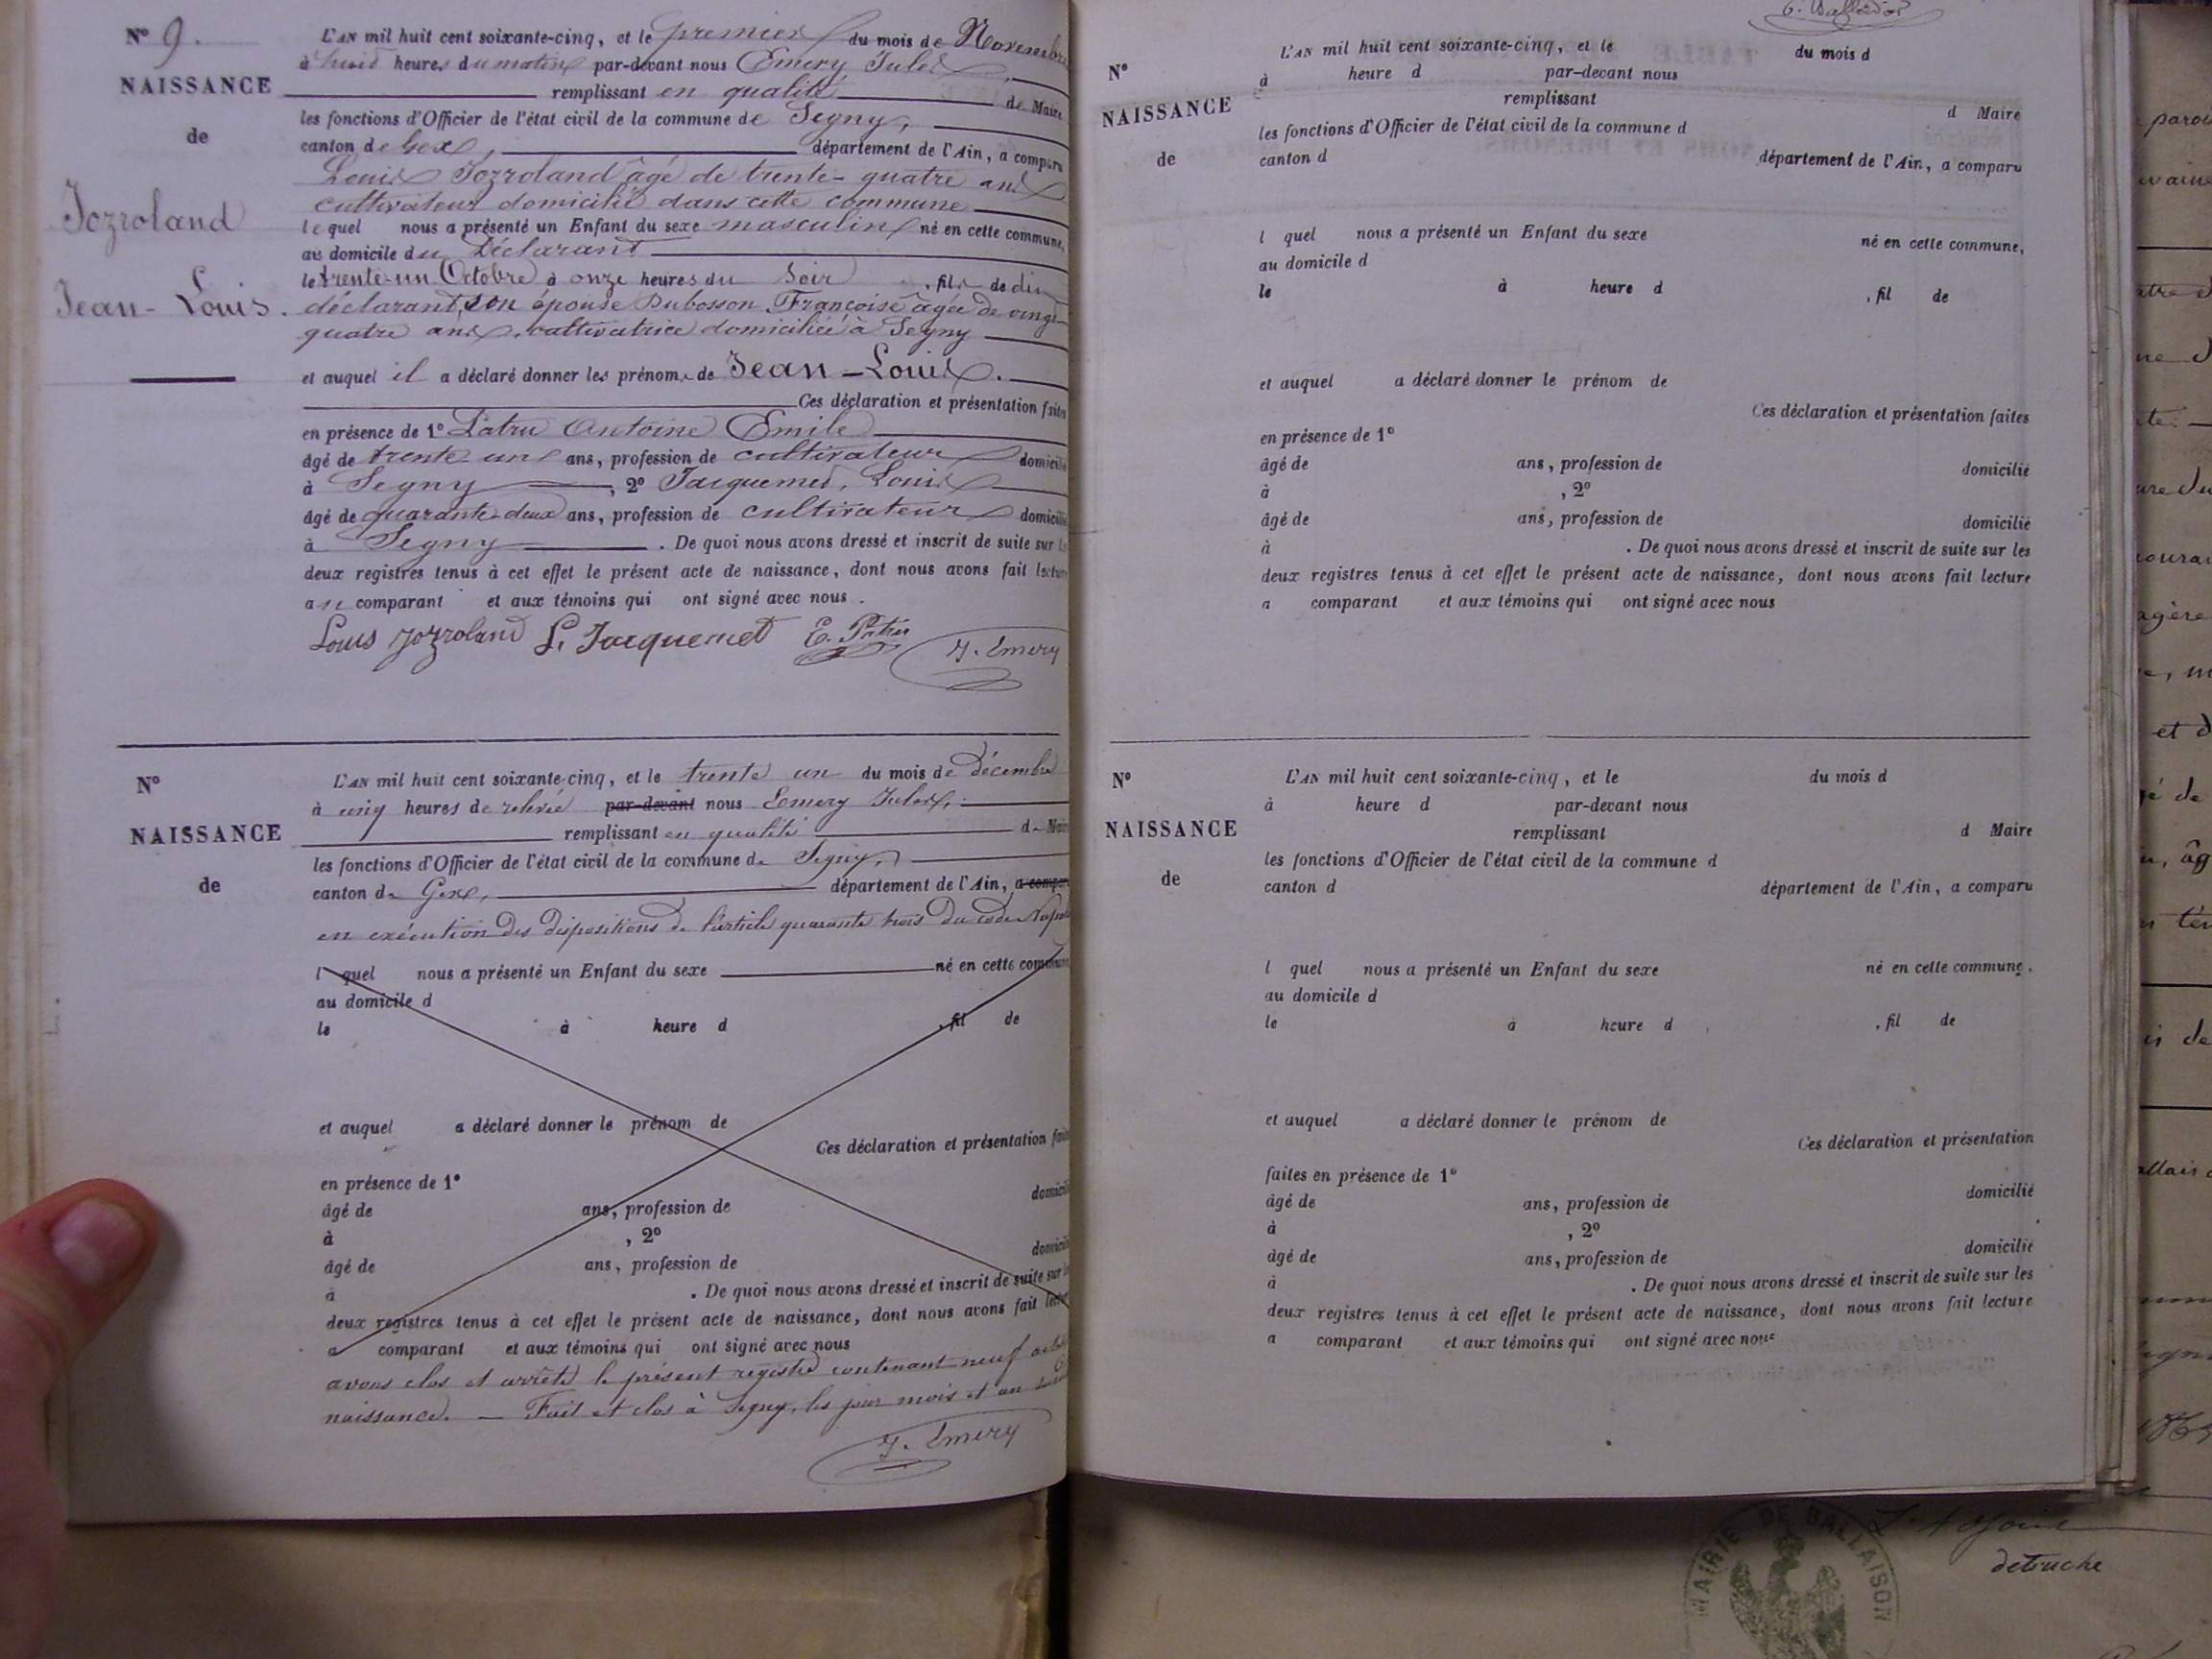 N° 9.
NAISSANCE
de
Jozroland
Jean-Louis.
L'AN mil huit cent soixante-cinq, et le premier du mois de Novembre
à huit heures du matin par-devant nous Emery Jules
remplissant en qualité de Maire
les fonctions d'Officier de l'état civil de la commune de Segny,
canton de Gex, département de l'Ain, a comparu
Louis Jozroland âgé de trente-quatre ans
cultivateur domicilié dans cette commune
lequel nous a présenté un Enfant du sexe masculin né en cette commune,
au domicile du Déclarant
le trente-un Octobre à onze heures du Soir, fils de dit
déclarant, son épouse Dubosson Françoise âgée de vingt-
quatre ans, cultivatrice domiciliée à Segny
et auquel il a déclaré donner les prénoms de Jean-Louis.
Ces déclaration et présentation faites
en présence de 1° Patru Antoine Emile
âgé de trente-un ans, profession de cultivateur domicilié
à Segny, 2° Jacquemet, Louis
âgé de quarante-deux ans, profession de cultivateur domicilié
à Segny. De quoi nous avons dressé et inscrit de suite sur
deux registres tenus à cet effet le présent acte de naissance, dont nous avons fait lecture
au comparant et aux témoins qui ont signé avec nous.
Louis Jozroland L. Jacquemet E. Patru
J. Emery
N°
NAISSANCE
de
L'AN mil huit cent soixante-cinq, et le trente un du mois de Décembre
à cinq heures de relevée par-devant nous Emery Jules,
remplissant en qualité de Maire
les fonctions d'Officier de l'état civil de la commune de Segny,
canton de Gex, département de l'Ain, a comparu
en exécution des dispositions de l'article quarante trois du code Napoléon
l quel nous a présenté un Enfant du sexe né en cette commune
au domicile d
le à heure d , fil de
et auquel a déclaré donner le prénom de
Ces déclaration et présentation faites
en présence de 1°
âgé de ans, profession de domicilié
à , 2°
âgé de ans, profession de domicilié
à . De quoi nous avons dressé et inscrit de suite sur
deux registres tenus à cet effet le présent acte de naissance, dont nous avons fait lecture
a comparant et aux témoins qui ont signé avec nous
avons clos et arrêté le présent registre contenant neuf actes de
naissance. — Fait et clos à Segny, les jour mois et an
J. Emery
N°
NAISSANCE
de
L'AN mil huit cent soixante-cinq, et le du mois d
à heure d par-devant nous
remplissant d Maire
les fonctions d'Officier de l'état civil de la commune d
canton d département de l'Ain, a comparu
l quel nous a présenté un Enfant du sexe né en cette commune,
au domicile d
le à heure d , fil de
et auquel a déclaré donner le prénom de
Ces déclaration et présentation faites
en présence de 1°
âgé de ans, profession de domicilié
à , 2°
âgé de ans, profession de domicilié
à . De quoi nous avons dressé et inscrit de suite sur les
deux registres tenus à cet effet le présent acte de naissance, dont nous avons fait lecture
a comparant et aux témoins qui ont signé avec nous
N°
NAISSANCE
de
L'AN mil huit cent soixante-cinq, et le du mois d
à heure d par-devant nous
remplissant d Maire
les fonctions d'Officier de l'état civil de la commune d
canton d département de l'Ain, a comparu
l quel nous a présenté un Enfant du sexe né en cette commune,
au domicile d
le à heure d , fil de
et auquel a déclaré donner le prénom de
Ces déclaration et présentation
faites en présence de 1°
âgé de ans, profession de domicilié
à , 2°
âgé de ans, profession de domicilié
à . De quoi nous avons dressé et inscrit de suite sur les
deux registres tenus à cet effet le présent acte de naissance, dont nous avons fait lecture
a comparant et aux témoins qui ont signé avec nous
MAIRIE DE BALLAISON